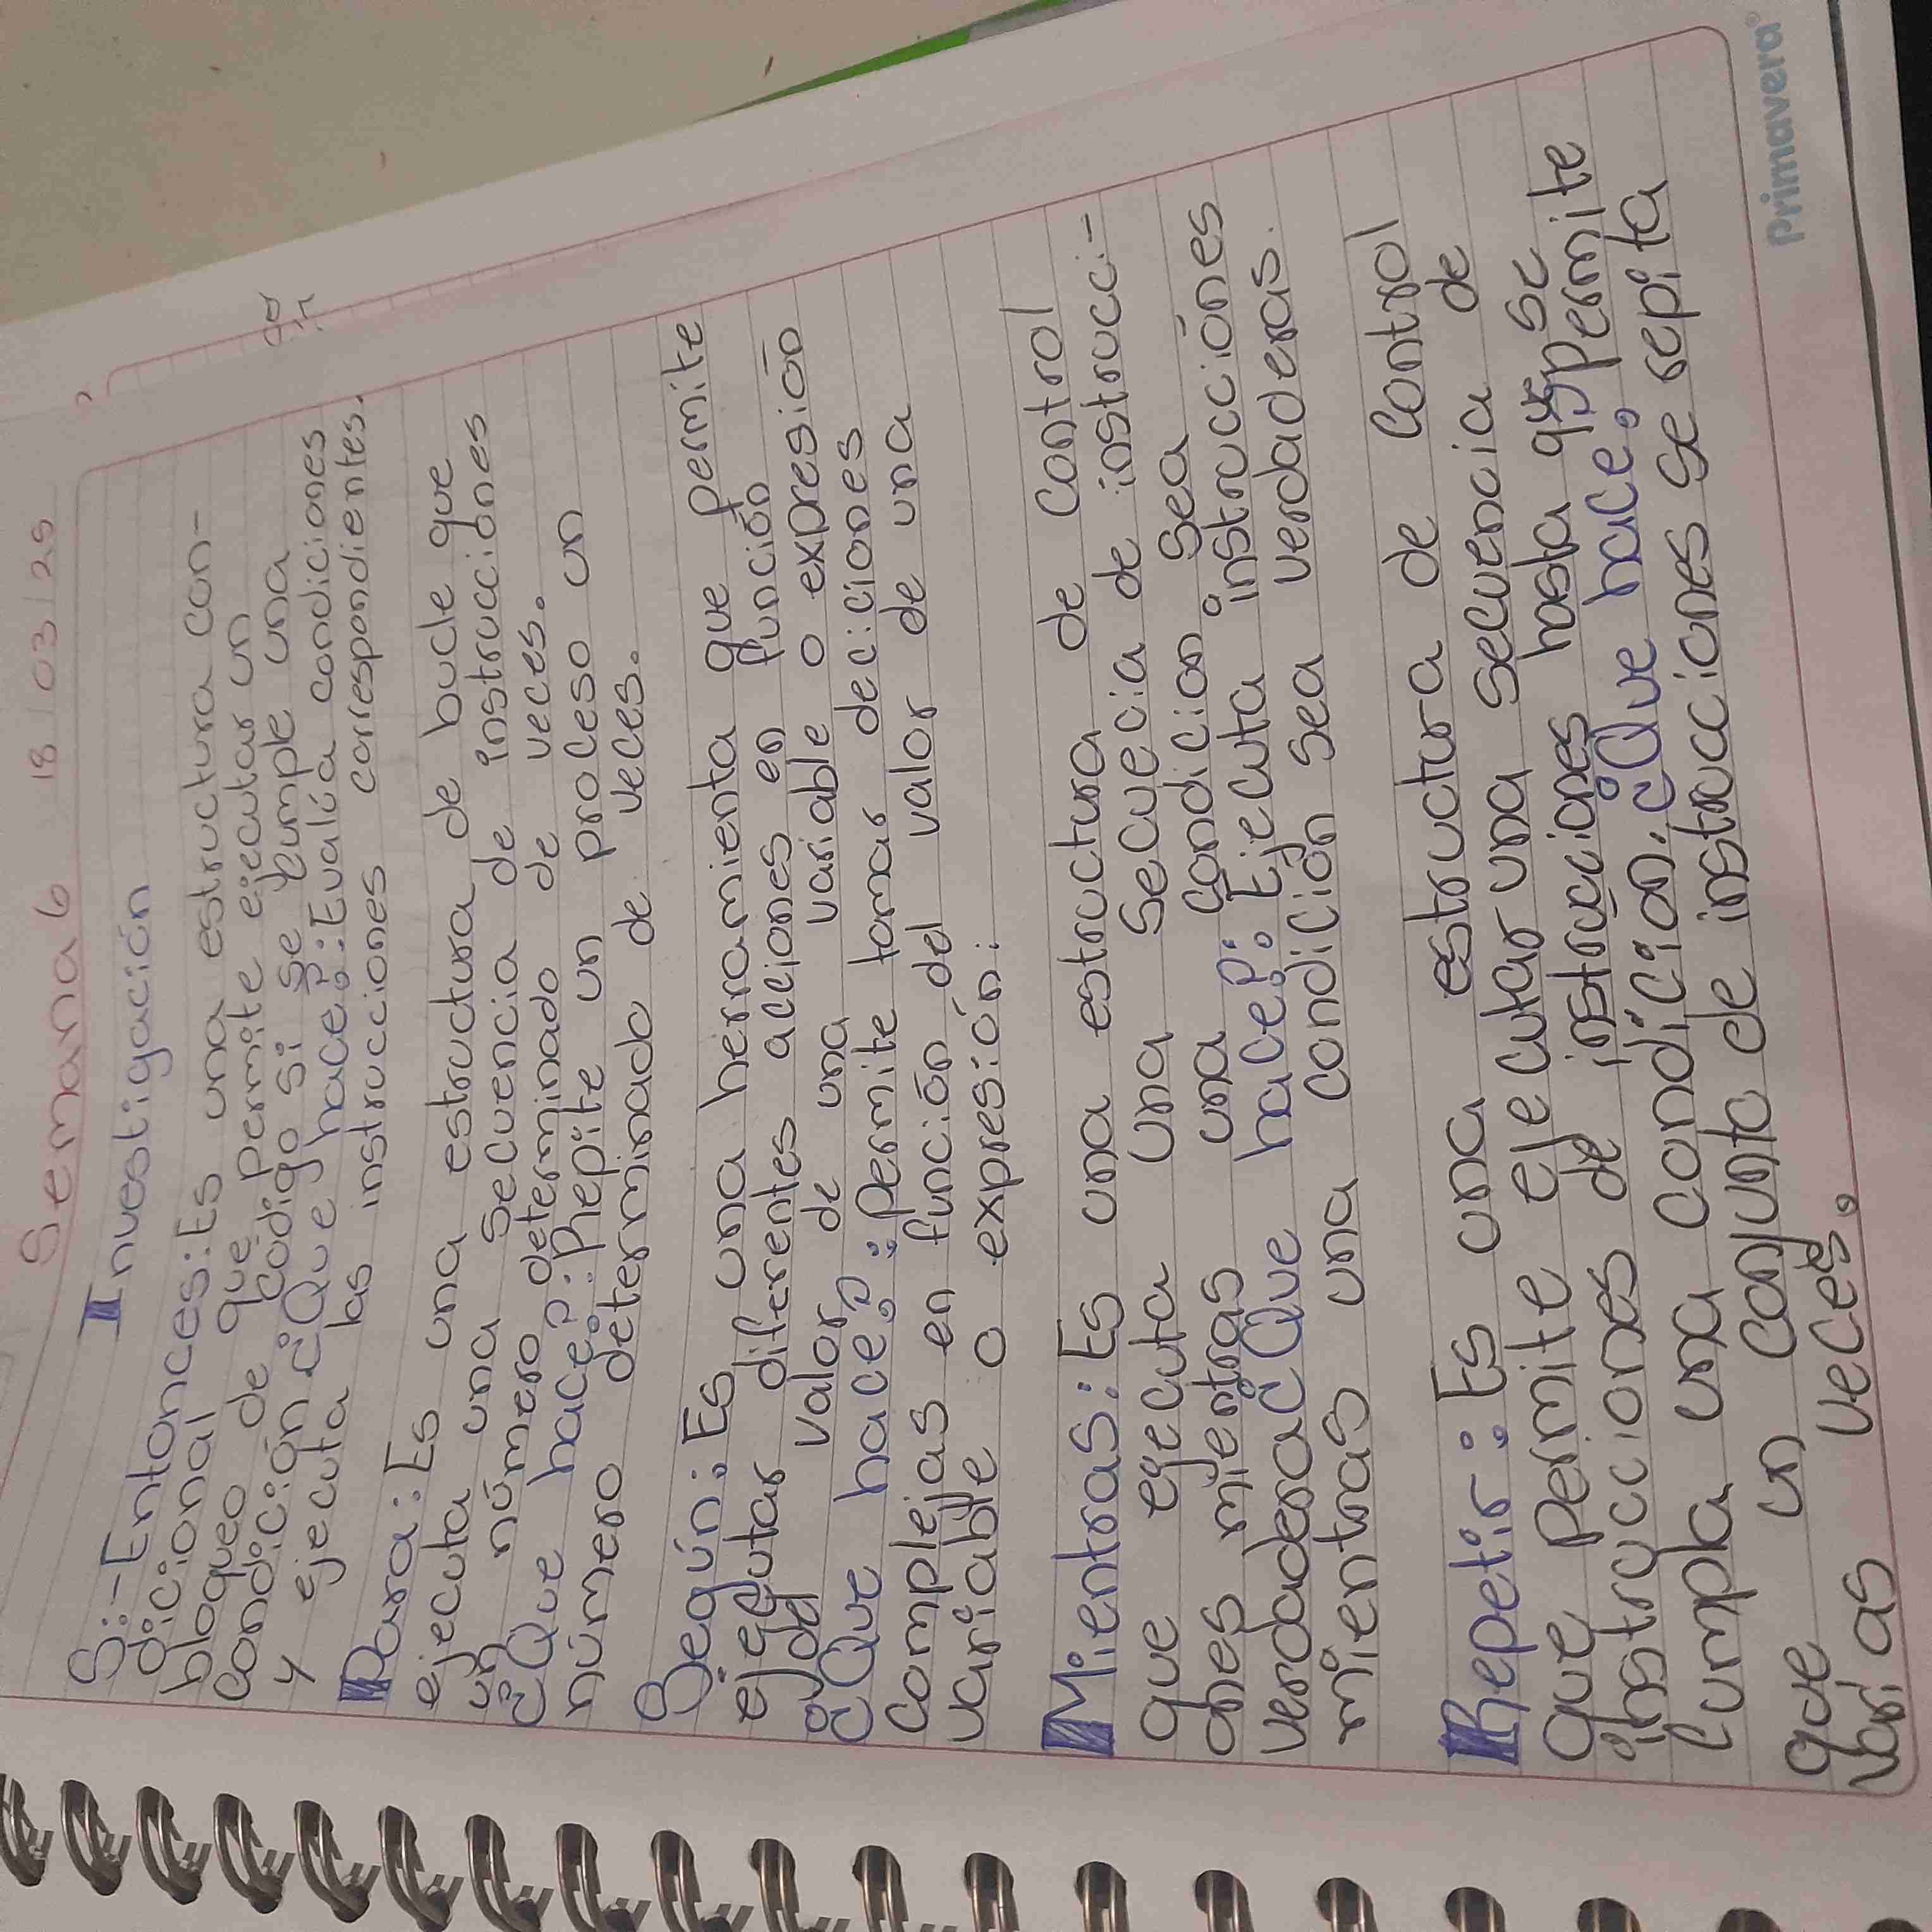 Semana 6 18/03/25
Investigación
Si-Entonces: Es una estructura con-
dicional que permite ejecutar un
bloqueo de código si se cumple una
condición ¿Que hace?: Evalúa condiciones
y ejecuta las instrucciones correspondientes.
Para: Es una estructura de bucle que
ejecuta una secuencia de instrucciones
un número determinado de veces.
¿Que hace?: Repite un proceso un
número determinado de veces.
Según: Es una herramienta que permite
ejecutar diferentes acciones en función
del valor de una variable o expresión
¿Que hace?: permite tomar deciciones
complejas en función del valor de una
variable o expresión:
Mientras: Es una estructura de control
que ejecuta una secuecia de instrucci-
ones mientras una condicion sea
verdadera ¿Que hace?: Ejecuta instrucciónes
mientras una condición sea verdaderas.
Repetir: Es una estructura de control
que permite ejecutar una secuencia de
instrucciones de instrucciones hasta que se
cumpla una condición. ¿Que hace? permite
que un conjunto de instrucciones se repita
varias veces.
Primavera®